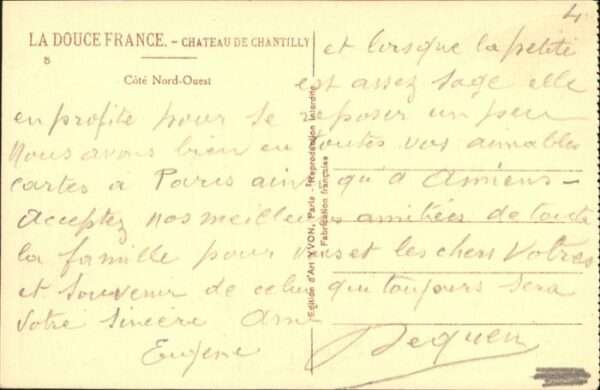 4
LA DOUCE FRANCE. - CHATEAU DE CHANTILLY
8
Côté Nord-Ouest
et lorsque la petite
est assez sage elle
en profite pour se reposer un peu
Nous avons bien eu toutes vos aimables
cartes à Paris ainsi qu'à Amiens -
Acceptez nos meilleures amitiées de toute
la famille pour vous et les chers Votres
et souvenir de celui qui toujours sera
Votre sincère Ami
Eugène
Edition d'Art YVON, Paris - Reproduction interdite
Fabrication française